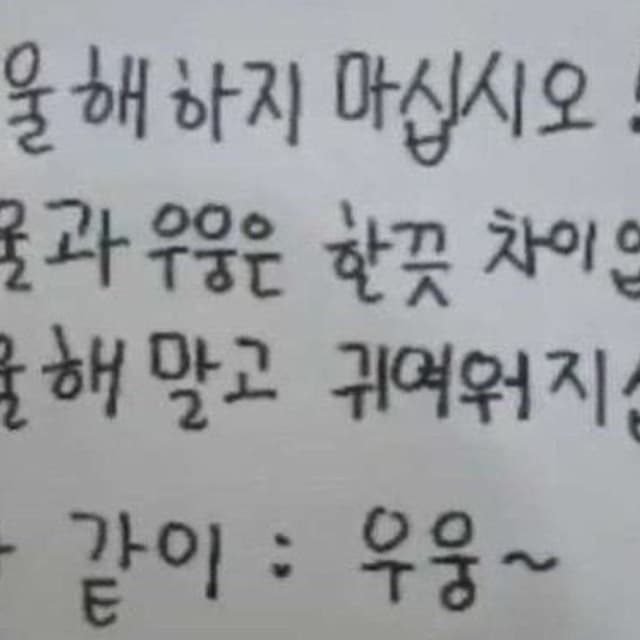 울해하지 마십시오!
울과 우웅은 한끗 차이입
울해 말고 귀여워지십
다 같이 : 우웅~